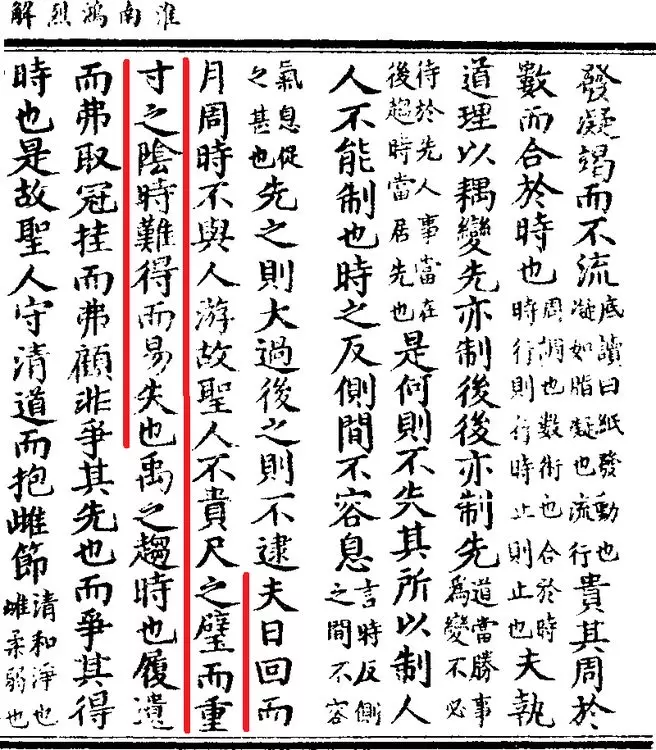 淮南鴻烈解
發凝竭而不流底讀曰紙發動也凝如脂凝也流行貴其周於
數而合於時也周調也數術也合於時時行則行時止則止也夫執
道理以耦變先亦制後後亦制先道當勝事爲變不必
待於先人事當在後趨時當居先也是何則不失其所以制人
人不能制也時之反側間不容息言時反側之間不容
氣息促之甚也先之則大過後之則不逮夫日回而
月周時不與人游故聖人不貴尺之璧而重
寸之陰時難得而易失也禹之趨時也履遺
而弗取冠挂而弗顧非爭其先也而爭其得
時也是故聖人守清道而抱雌節清和淨也雌柔弱也